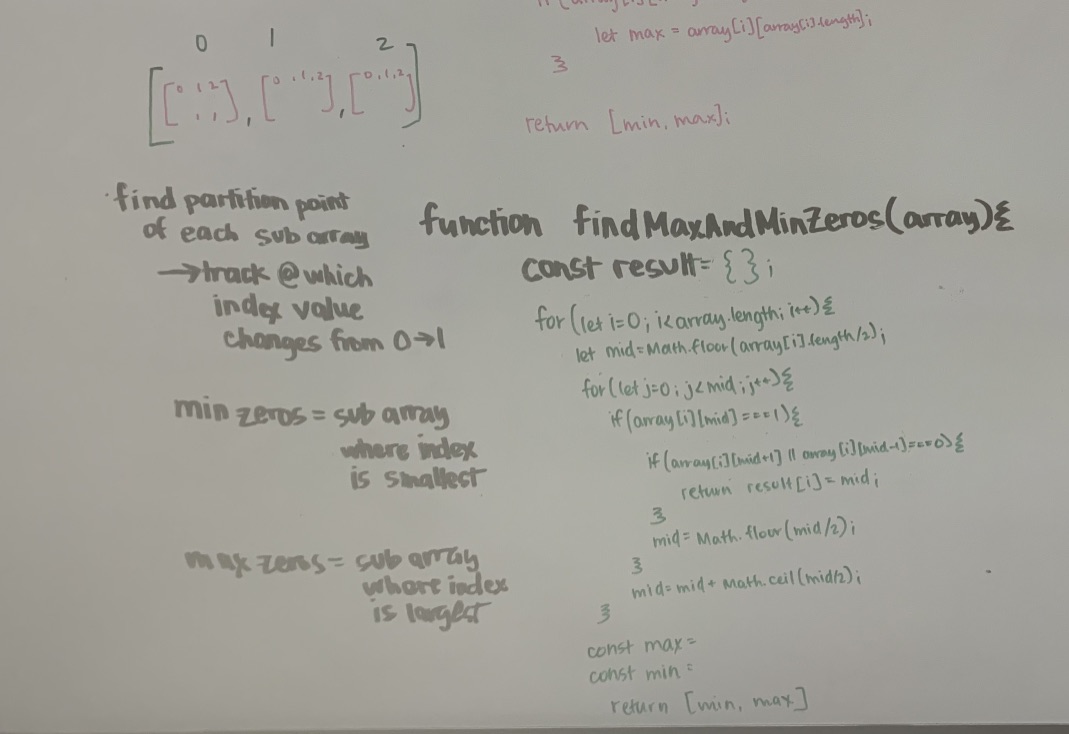 let max = array[i][array[i].length];
}
return [min, max];
0 1 2
[[0 1 2], [0, 1, 2], [0, 1, 2]]
find partition point
of each sub array
→ track @ which
index value
changes from 0→1
min zeros = sub array
where index
is smallest
max zeros = sub array
where index
is largest
function findMaxAndMinZeros(array){
const result = {};
for (let i=0; i<array.length; i++){
let mid=Math.floor(array[i].length/2);
for(let j=0; j<mid; j++){
if(array[i][mid]===1){
if(array[i][mid+1] || array[i][mid-1]===0){
return result[i]=mid;
}
mid=Math.floor(mid/2);
}
mid=mid+Math.ceil(mid/2);
}
const max=
const min=
return [min, max]